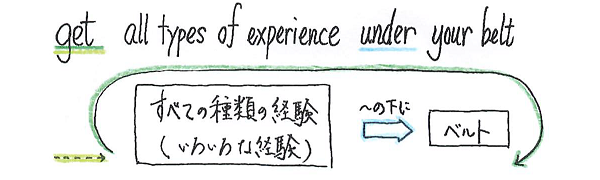 get all types of experience under your belt
すべての種類の経験
(いろいろな経験)
~の下に
ベルト